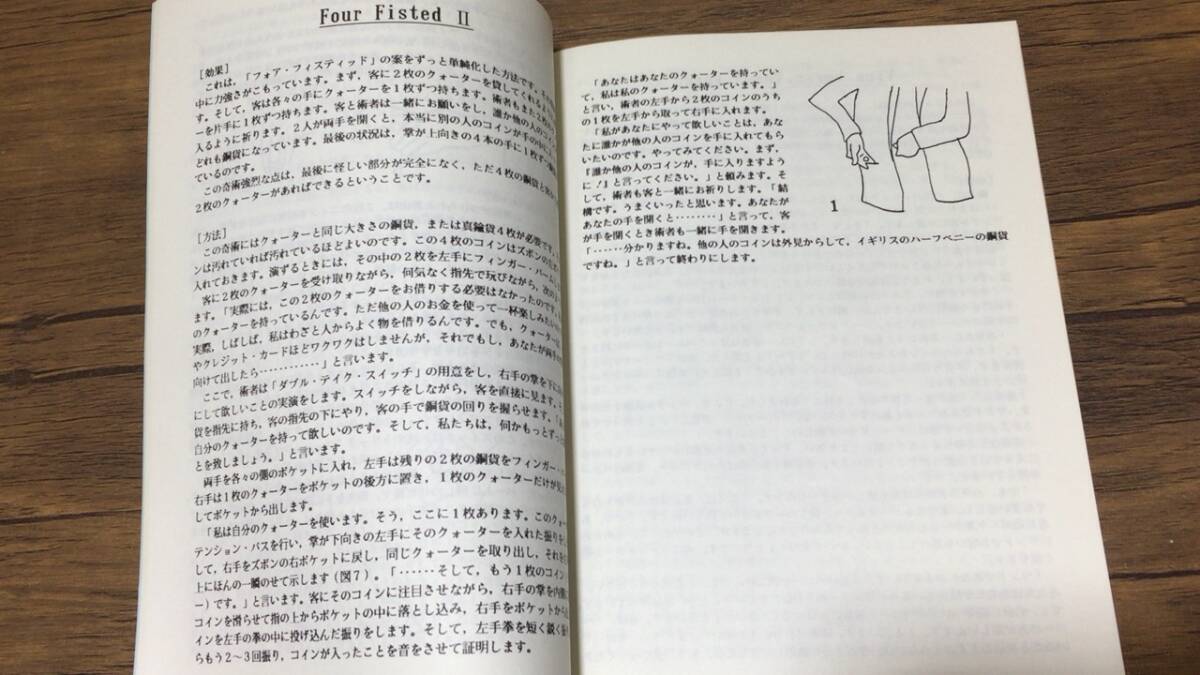 Four Fisted Ⅱ
[効果]
これは、「フォア・フィスティッド」の案をずっと単純化した方法です。
中に力強さがこもっています。まず、客に2枚のクォーターを貸してくれるよう
す。そして、客は各々の手にクォーターを1枚ずつ持ちます。術者もまた2
ーを片手に1枚ずつ持ちます。客と術者は一緒にお願いをし、誰か他の人のコイン
入るように祈ります。2人が両手を開くと、本当に別の人のコインが手の中に
どれも銅貨になっています。最後の状況は、掌が上向きの4本の手に1枚ずつ銅
ているのです。
この奇術強烈な点は、最後に怪しい部分が完全になく、ただ4枚の銅貨と
2枚のクォーターがあればできるということです。
[方法]
この奇術にはクォーターと同じ大きさの銅貨、または真鍮貨4枚が必要です。
ンは汚れていれば汚れているほどよいのです。この4枚のコインはズボンの左
入れておきます。演ずるときには、その中の2枚を左手にフィンガー・パーム
客に2枚のクォーターを受け取りながら、何気なく指先で玩びながら、次の
ます。「実際には、この2枚のクォーターをお借りする必要はなかったのです。
のクォーターを持っているんです。ただ他の人のお金を使って一杯楽しみたい
実際、しばしば、私はわざと人からよく物を借りるんです。でも、クォーターは
やクレジット・カードほどワクワクはしませんが、それでもし、あなたが両手の
向けて出したら…………」と言います。
ここで、術者は「ダブル・テイク・スイッチ」の用意をし、右手の掌を下に
にして欲しいことの実演をします。スイッチをしながら、客を直接に見ます。
貨を指先に持ち、客の指先の下にやり、客の手で銅貨の回りを握らせます。「
自分のクォーターを持って欲しいのです。そして、私たちは、何かもっとずっと
とを致しましょう。」と言います。
両手を各々の側のポケットに入れ、左手は残りの2枚の銅貨をフィンガー・
右手は1枚のクォーターをポケットの後方に置き、1枚のクォーターだけが見
してポケットから出します。
「私は自分のクォーターを使います。そう、ここに1枚あります。このクォー
テンション・パスを行い、掌が下向きの左手にそのクォーターを入れた振りを
して、右手をズボンの右ポケットに戻し、同じクォーターを取り出し、それを
上にほんの一瞬のせて示します(図7)。「……そして、もう1枚のコイン
ー)です。」と言います。客にそのコインに注目させながら、右手の掌を内側
コインを滑らせて指の上からポケットの中に落とし込み、右手をポケットから
インを左手の拳の中に投げ込んだ振りをします。そして、左手拳を短く鋭く振
らもう2~3回振り、コインが入ったことを音をさせて証明します。
「あなたはあなたのクォーターを持ってい
て、私は私のクォーターを持っています。」
と言い、術者の左手から2枚のコインのうち
の1枚を左手から取って右手に入れます。
「私があなたにやって欲しいことは、あな
たに誰かが他の人のコインを手に入れてもら
いたいのです。やってみてください。まず、
『誰か他の人のコインが、手に入りますよう
に!』と言ってください。」と頼みます。そ
して、術者も客と一緒にお祈りします。「結
構です。うまくいったと思います。あなたが
あなたの手を開くと………」と言って、客
が手を開くとき術者も一緒に手を開きます。
「……分かりますね。他の人のコインは外見からして、イギリスのハーフペニーの銅貨
ですね。」と言って終わりにします。
1